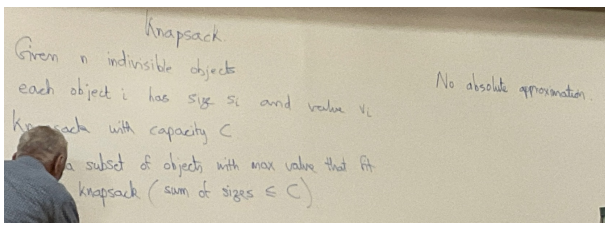 Knapsack.
Given n indivisible objects
each object i has size si and value vi
with capacity C
a subset of objects with max value that fit
knapsack (sum of sizes ≤ C)
No absolute approximation.